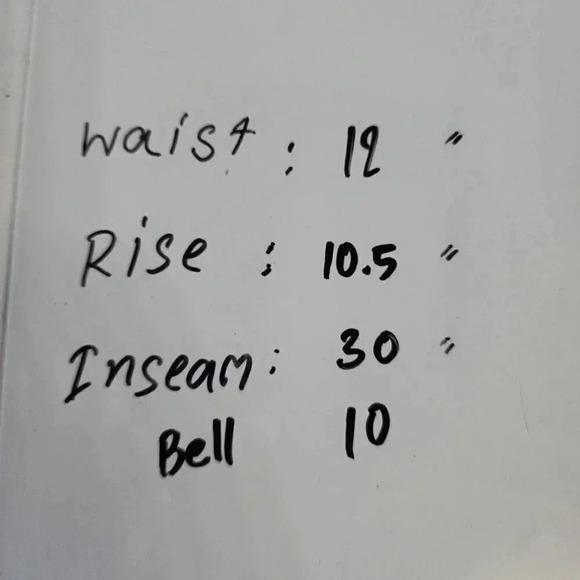 Waist : 12 "
Rise : 10.5 "
Inseam : 30 "
Bell 10